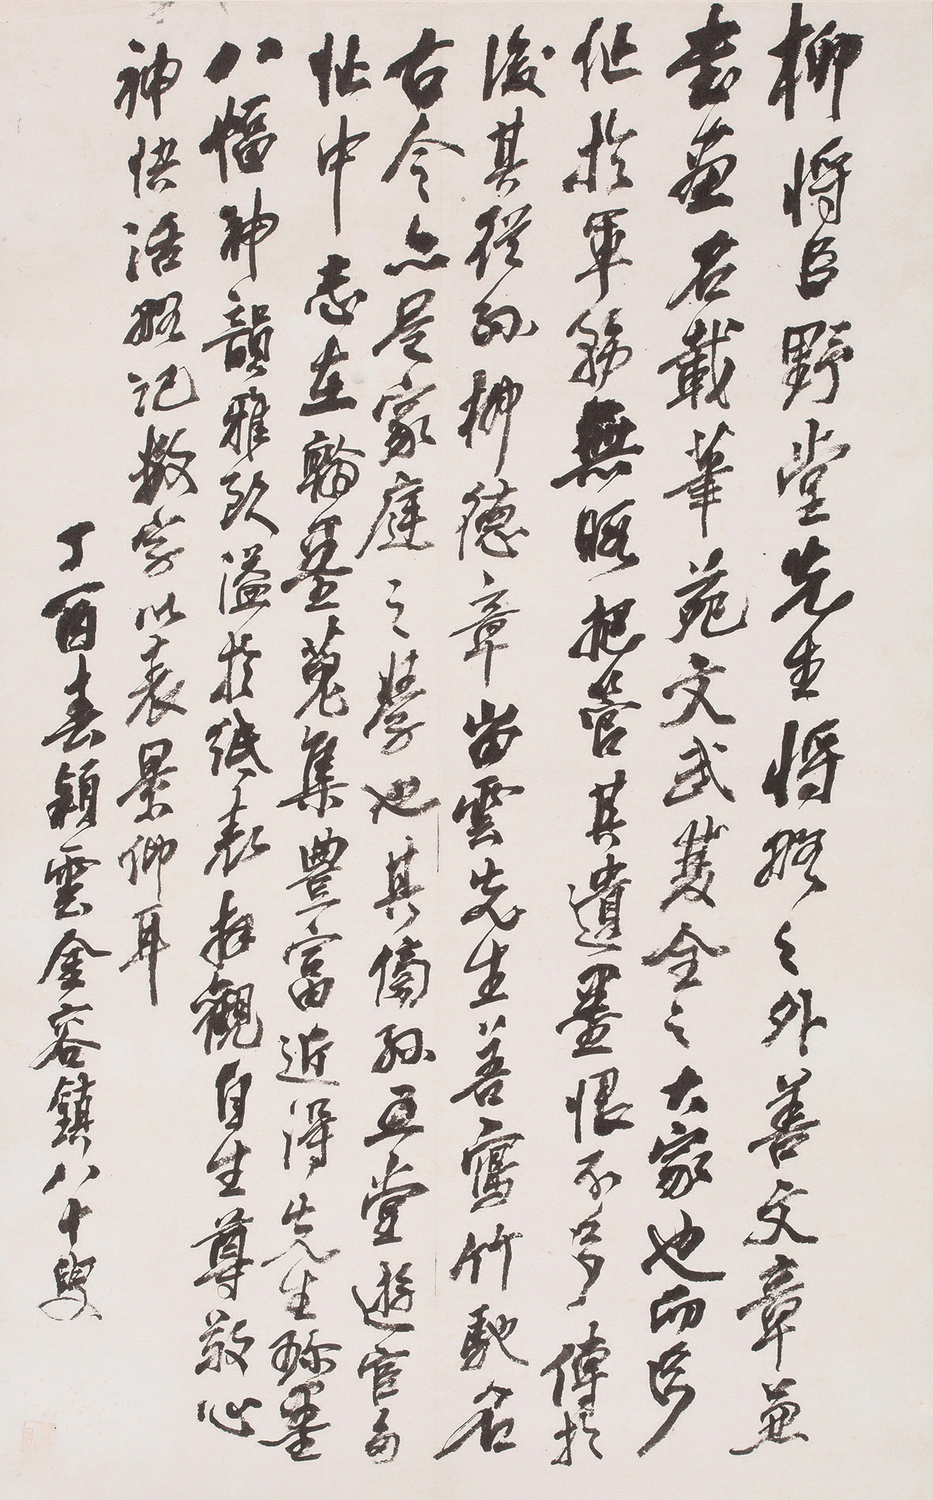 柳將臣野堂先生將略之外善文章兼
書画名載筆苑文武蒹全之大家也而
作於軍務無暇把管其遺墨恨不多傳於
後其從孫柳德章岫雲先生善寫竹馳名
古今亦是家庭之學也其傍孫五堂遊官多
忙中志在翰墨蒐集豊富近得先生珎墨
八幅神韻雅致溢於紙表拜觀自生尊敬心
神快活略記数字以表景仰耳
丁酉春潁雲金容鎮八十叟